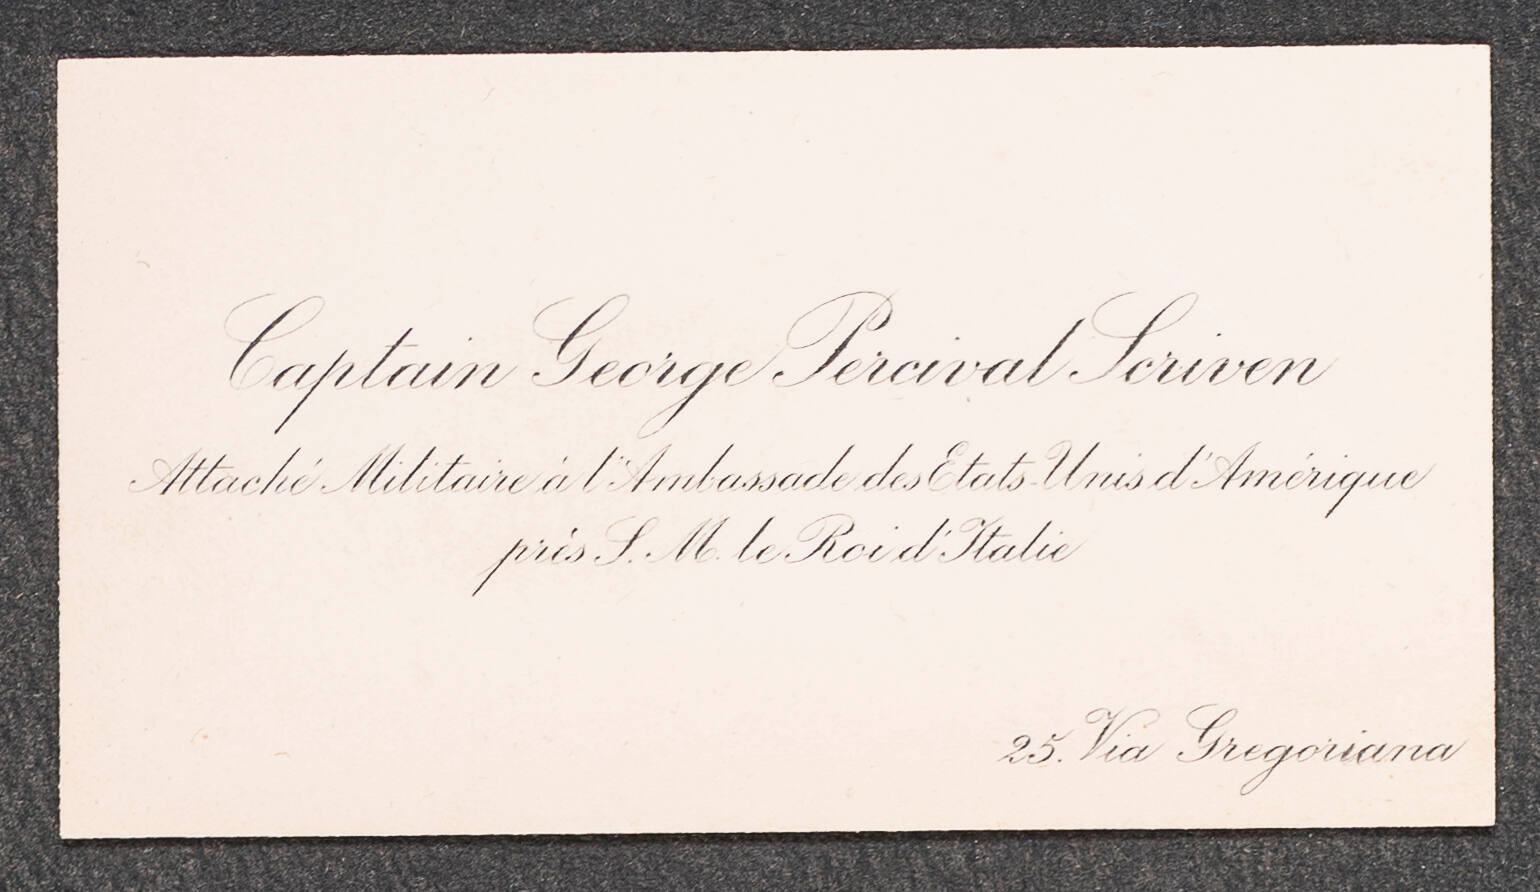 Captain George Percival Scriven
Attaché Militaire à l'Ambassade des Etats-Unis d'Amérique
près S. M. le Roi d'Italie
25. Via Gregoriana